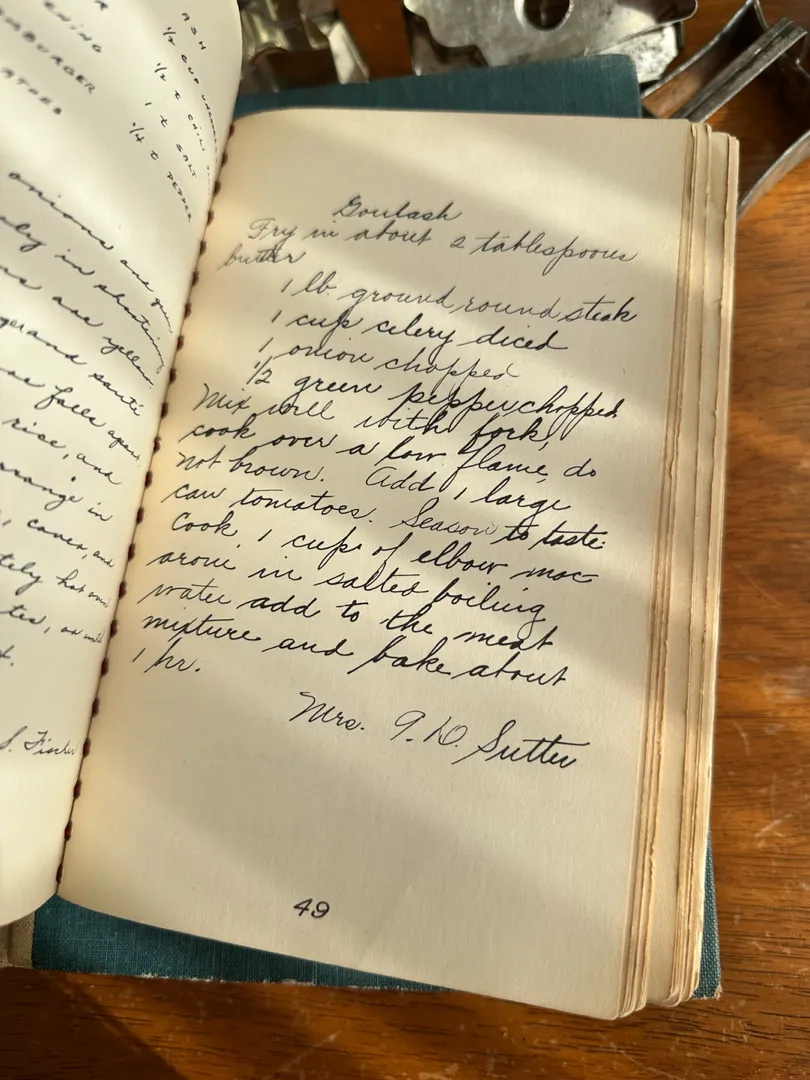 ENING
MBURGER
ATOES
ASH
1/2 CUP
1/2 t CHILI
1 t SALT
1/4 t PEPPER
onions are
in shortening
are yellow.
and sauté
falls apart.
rice, and
arrange in
, cover, and
tely hot oven
S. Fischer
Goulash
Fry in about 2 tablespoons
butter
1 lb. ground round steak
1 cup celery diced
1 onion chopped
1/2 green pepper chopped
Mix well with fork,
cook over a low flame, do
not brown. Add 1 large
can tomatoes. Season to taste.
Cook 1 cup of elbow mac
aroni in salted boiling
water add to the meat
mixture and bake about
1 hr.
Mrs. G. D. Sutter
49